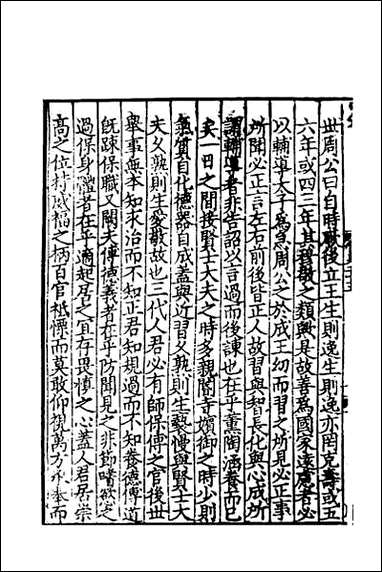 世周公曰自時厥後立王生則逸生則逸亦罔克壽或五
六年或四三年其穆敬之類與是故善為國家遠慮者必
以輔導太子為急周公之於成王幼而習之所見必正事
所聞必正言左右前後皆正人故習與智長化與心成所
謂輔導者非告詔以言過而後諫也在乎薰陶涵養而已
矣一日之間接賢士大夫之時多親閹寺嬪御之時少則
氣質自化德器自成蓋與近習久熟則生䙝慢與賢士大
夫久熟則生愛敬故也三代人君必有師保傅之官後世
舉事無本知求治而不知正君知規過而不知養德傅道
既疎保職又闕夫傅德義者在乎防聞見之非節嗜欲之
過保身體者在乎適起居之宜存畏慎之心蓋人君居崇
高之位持威福之柄百官祗慄而莫敢仰視萬方承奉而